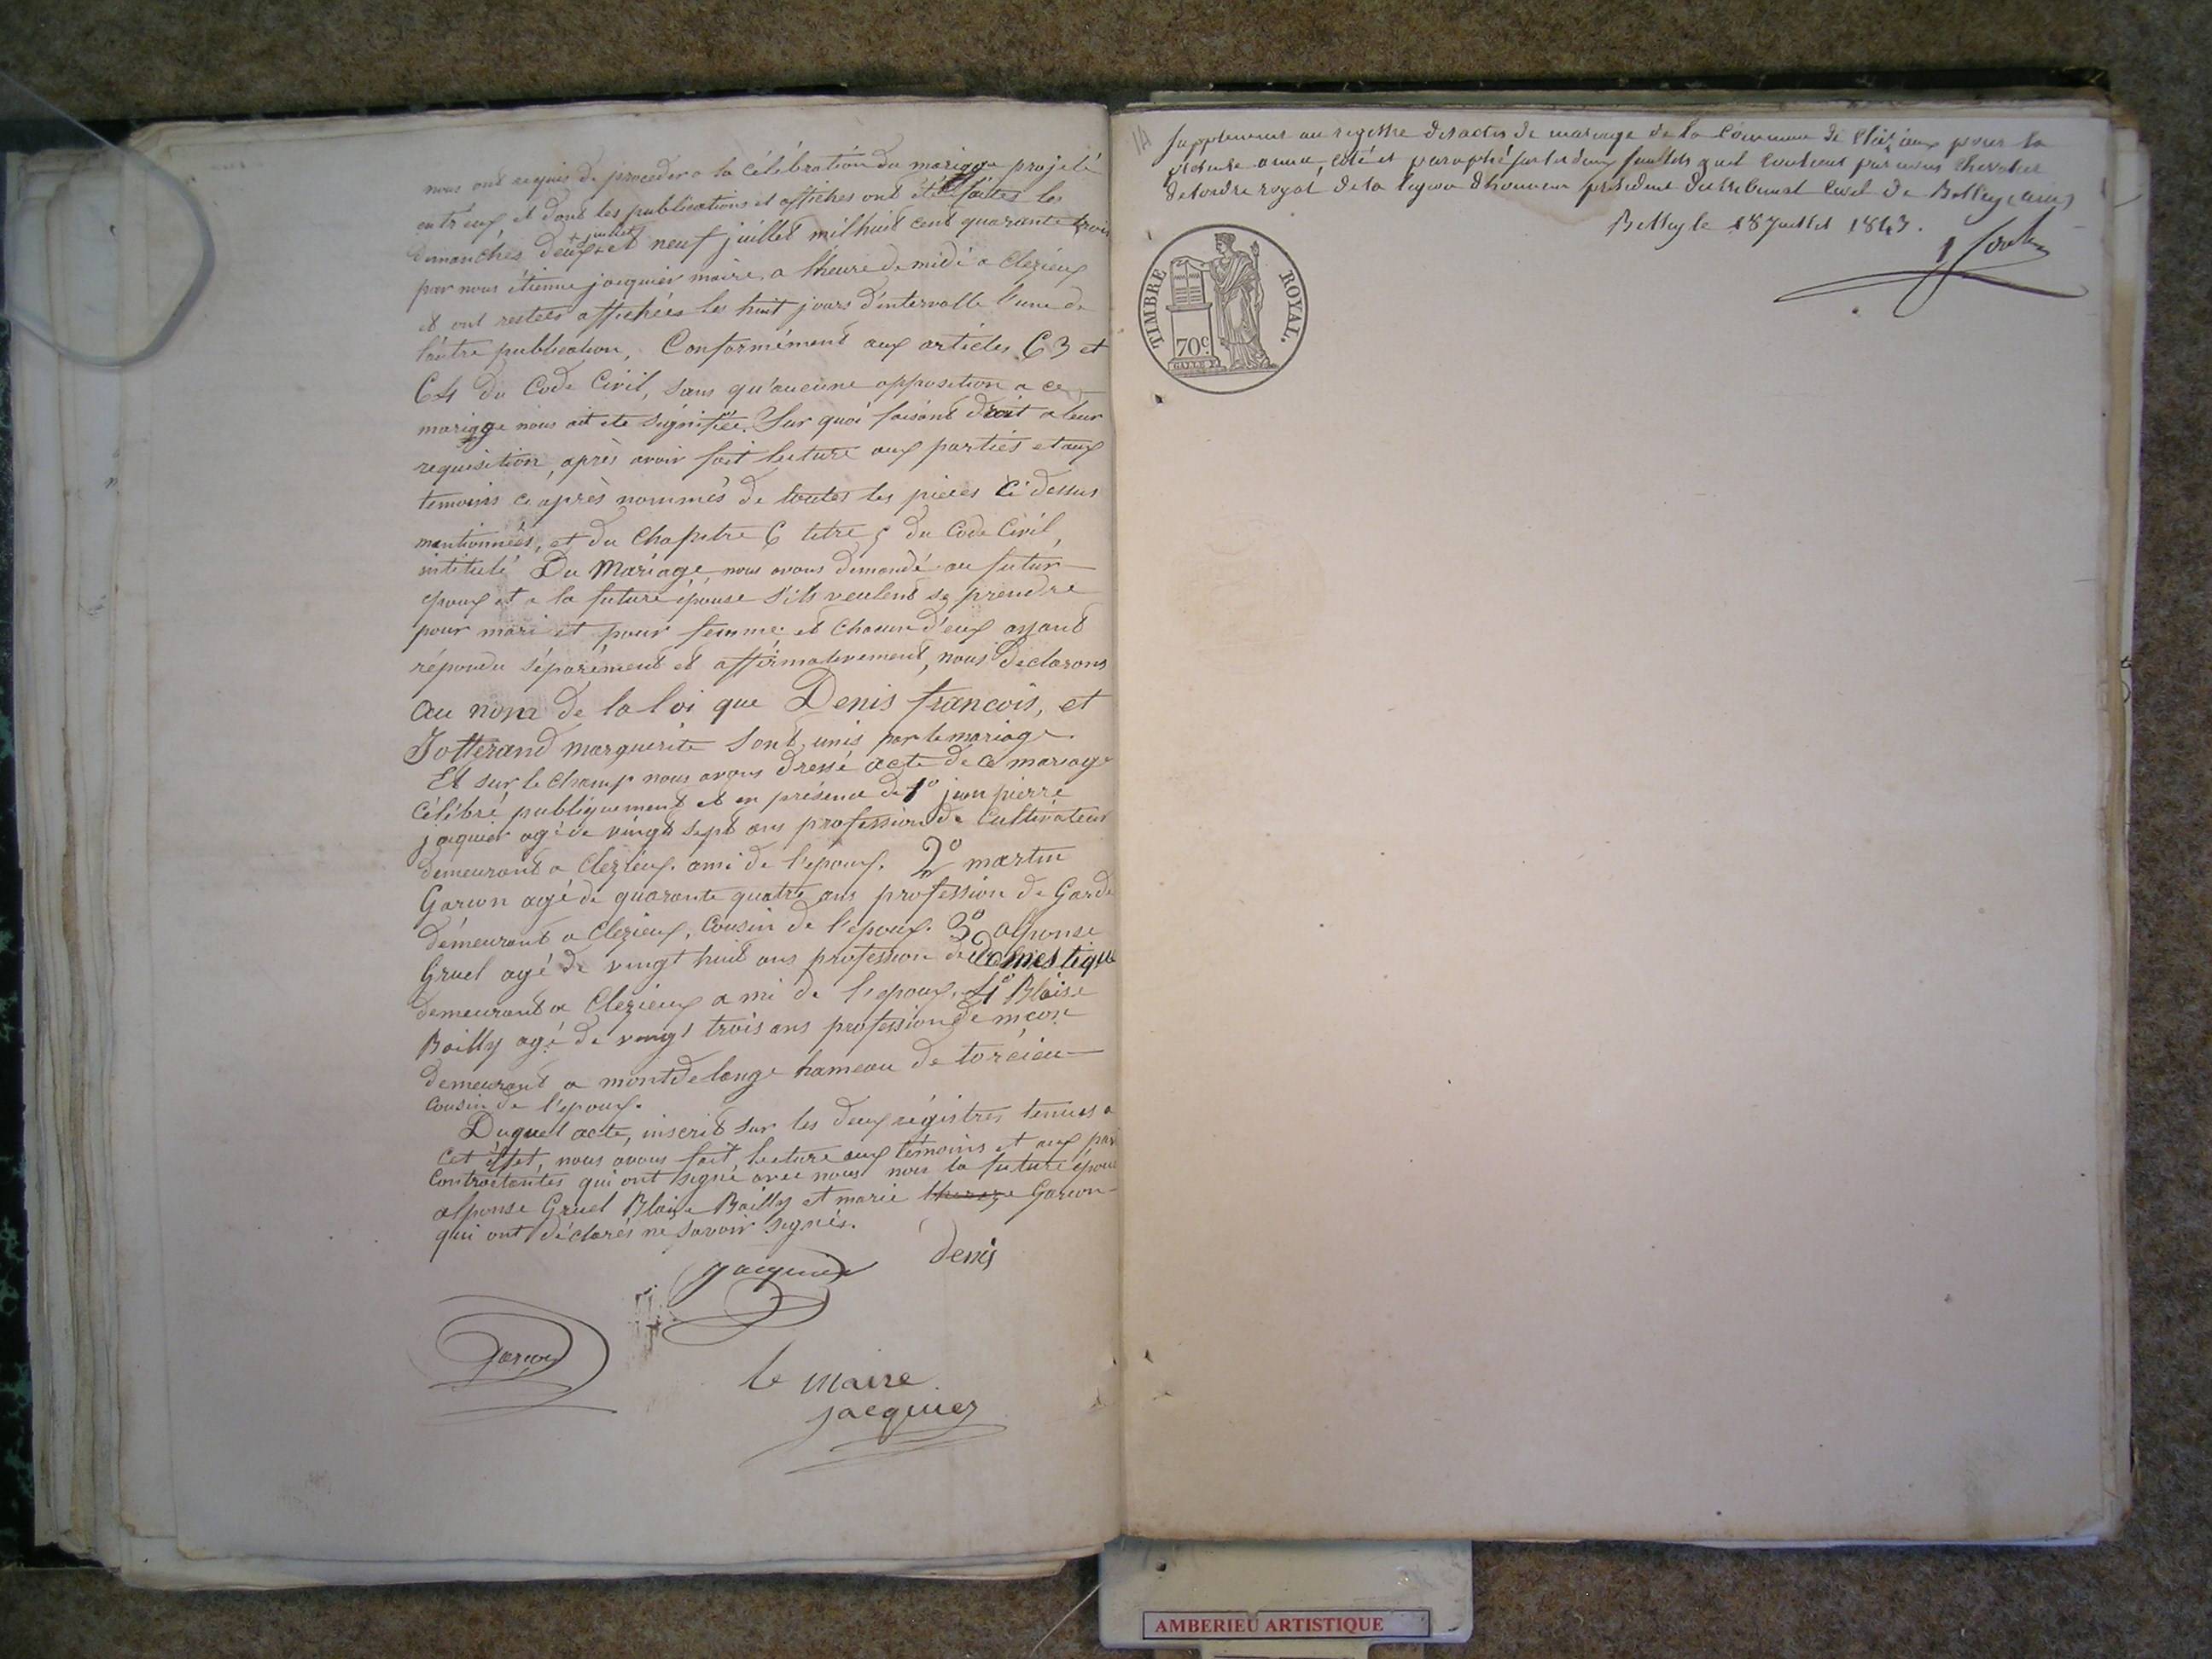 nous ont requis de proceder a la célébration du mariage projeté
entr'eux, et dont les publications et affiches ont été faites les
juillet
dimanches deux et neuf juillet mil huit cent quarante trois
par nous étienne jacquier maire, a l'heure de midi a Clezieux
et ont restées affichées les huit jours d'intervalle l'une de
l'autre publication, Conformément aux articles 63 et
64 du Code Civil, sans qu'aucune opposition a ce
mariage nous ait été signifiée. Sur quoi faisant droit a leur
requisition, après avoir fait lecture aux parties et aux
temoins ci après nommés de toutes les pieces ci dessus
mentionnées, et du Chapitre 6 titre 5 du Code Civil,
intitulé Du Mariage, nous avons demandé au futur
epoux et a la future épouse s'ils veulent se prendre
pour mari et pour femme et chacun d'eux ayant
répondu séparément et affirmativement, nous declarons
au nom de la loi que Denis francois, et
Jotterand marguerite sont unis par le mariage.
Et sur le champ nous avons dressé acte de ce mariage
Célébré publiquement et en présence de 1° jean pierre
jacquier agé de vingt sept ans profession de Cultivateur
demeurant a Clezieux. ami de l'epoux. 2° martin
Garcon agé de quarante quatre ans profession de Garde
démeurant a Clezieux, Cousin de l'epoux. 3° alfonse
Gruel agé de vingt huit ans profession de domestique
demeurant a Clezieux ami de l'epoux. 4° Blaise
Bailly agé de vingt trois ans profession de mcon
demeurant a montdelange hameau de torcieu
Cousin de l'epoux.
Duquel acte, inscrit sur les deux régistres tenues a
cet effet, nous avons fait lecture aux témoins et aux par
Contractantes qui ont signé avec nous non la future épouse
alfonse Gruel Blaise Bailly et marie Garcon
qui ont déclarés ne savoir signés.
jacquier denis
Garcon
le maire
jacquier
14
Supplement au registre des actes de mariage de la Commune de Cleizieux pour la
présente année, coté et paraphé sur les deux feuillets qu'il contient par nous chevalier
de l'ordre royal de la legion d'honneur président du tribunal Civil de Belley (ain)
Belley le 18 Juillet 1843.
TIMBRE ROYAL.
70c.
AMBERIEU ARTISTIQUE